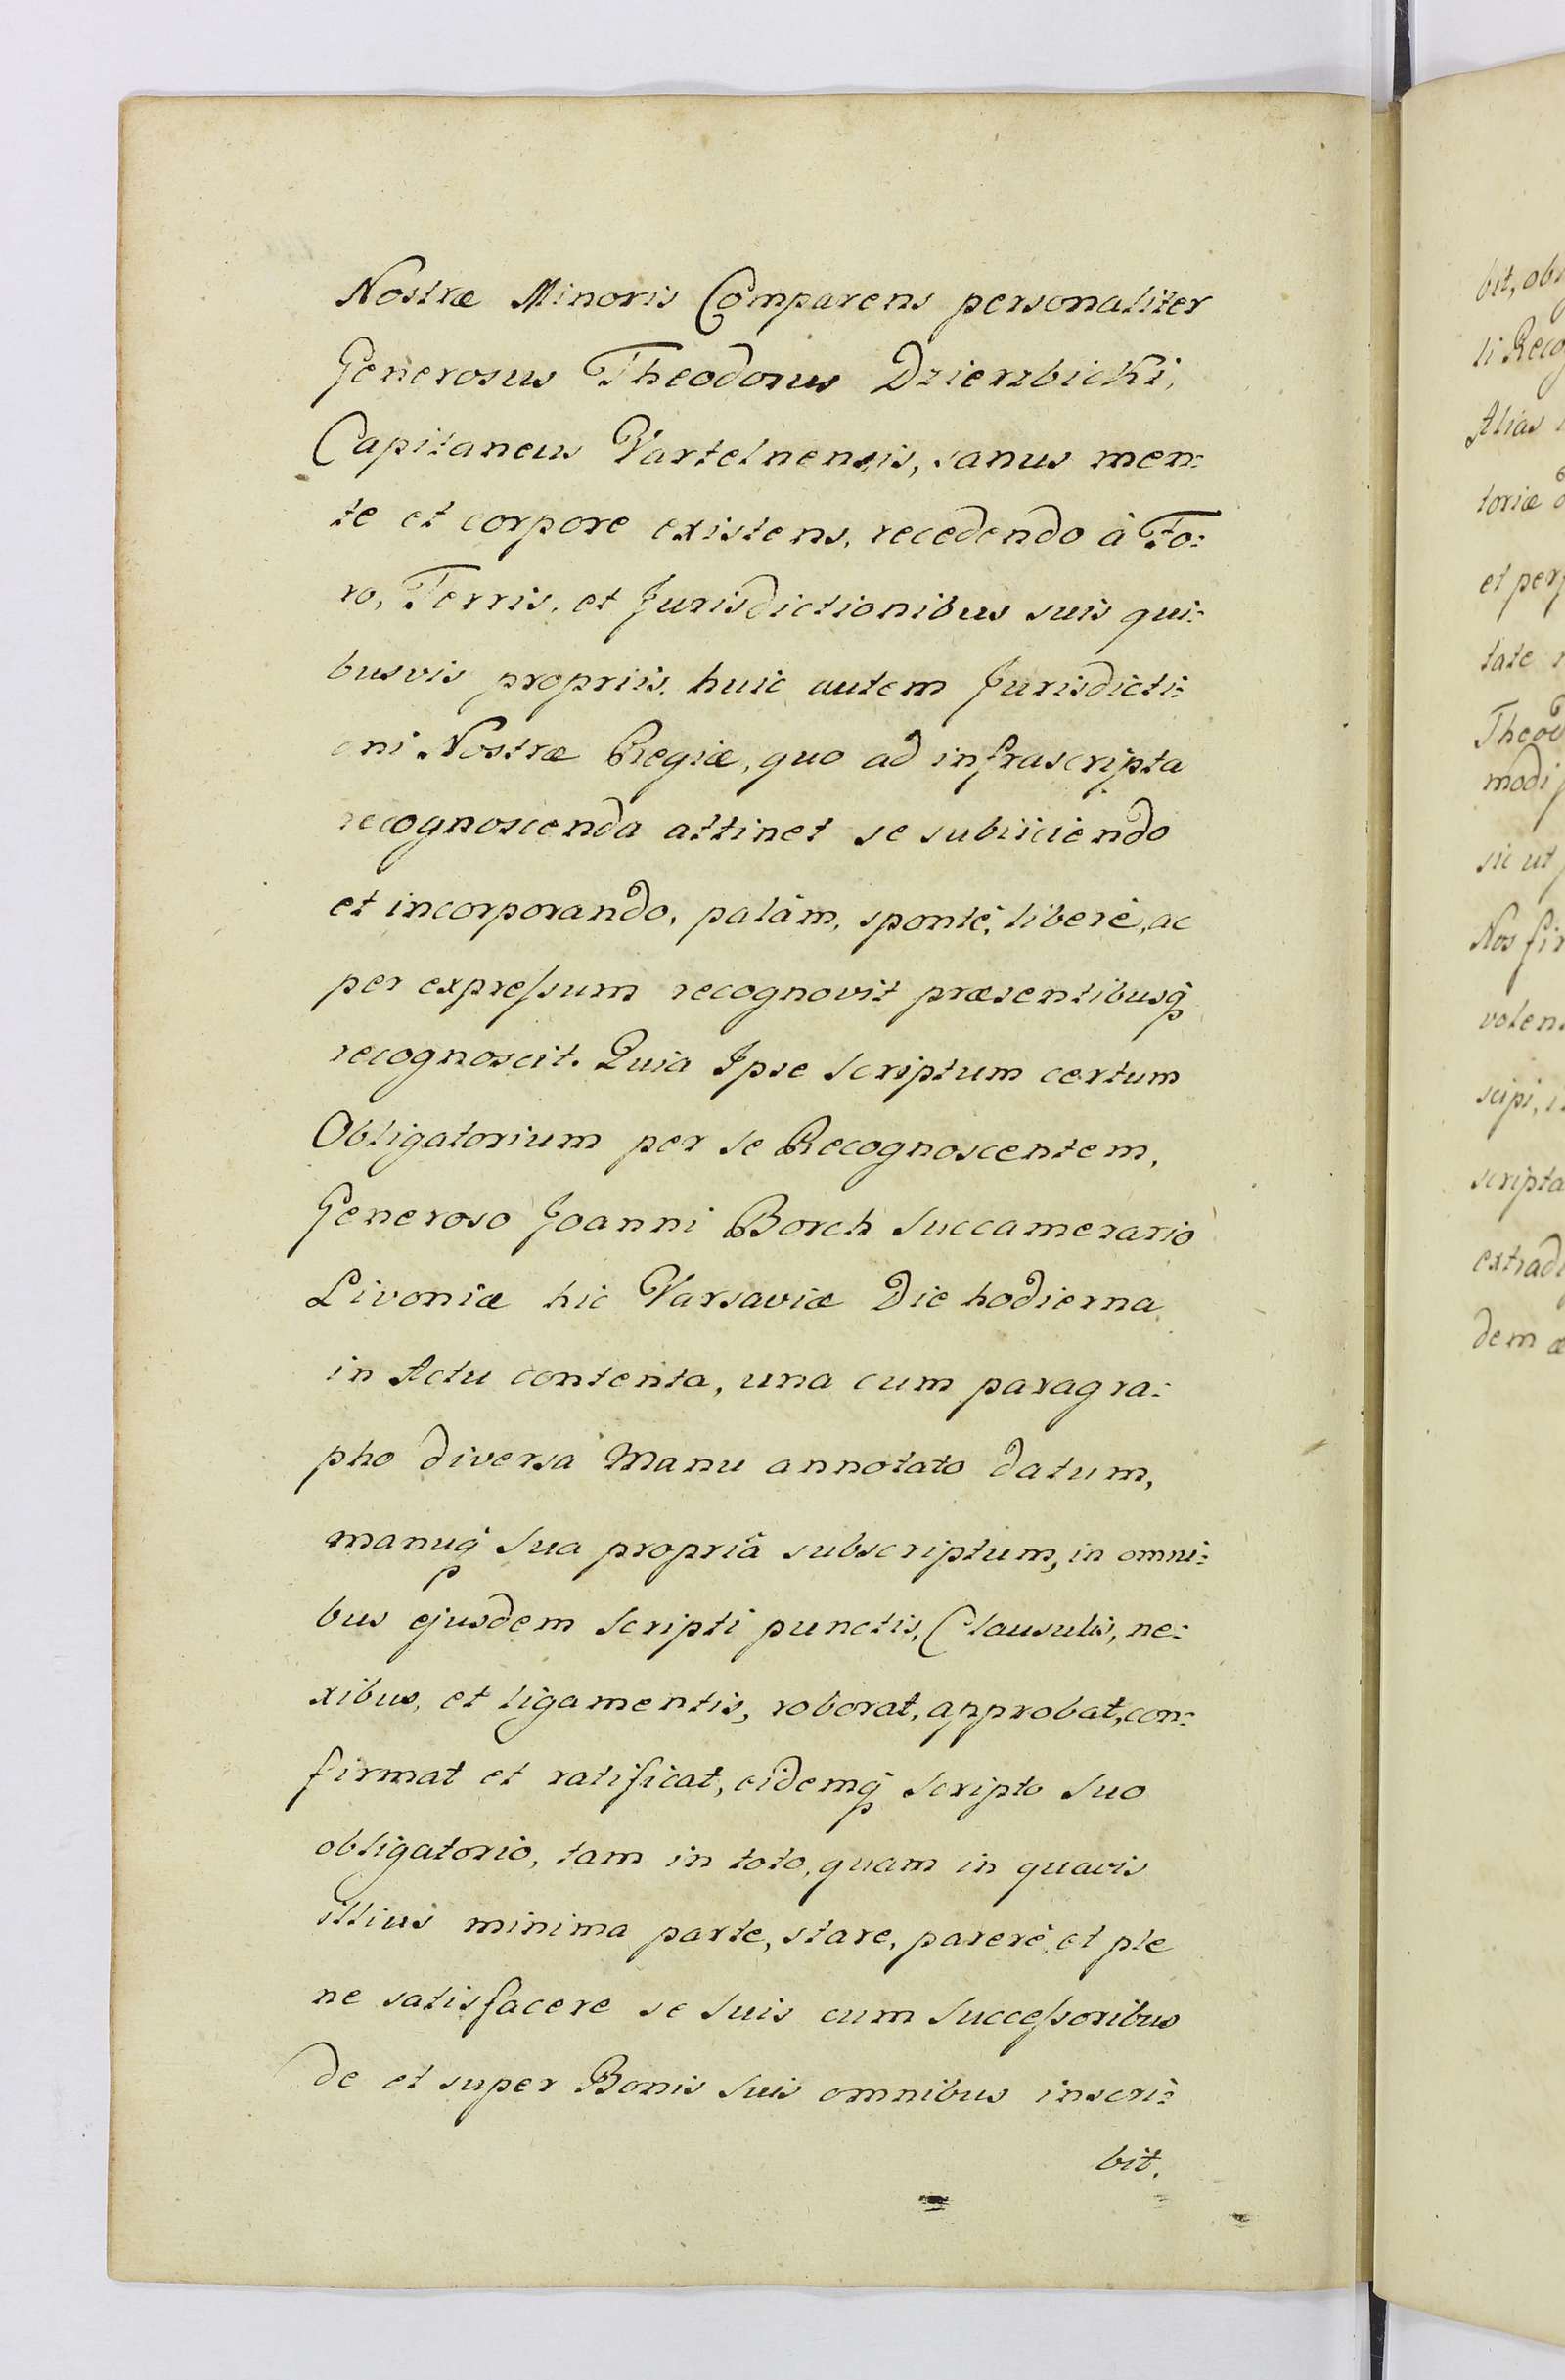 Nostræ Minoris Comparens personaliter
Generosus Theodorus Dzierzbicki,
Capitaneus Vartelnensis, sanus men:
te et corpore existens, recedendo à Fo:
ro, Terris, et Jurisdictionibus suis qui:
busvis propriis, huic autem Jurisdicti:
oni Nostræ Regiæ, quo ad infrascripta
recognoscenda attinet se subiiciendo
et incorporando, palàm, spontè, liberè, ac
per expreſsum recognovit præsentibusq̃
recognoscit. Quia Ipse Scriptum certum
Obligatorium per se Recognoscentem,
Generoso Joanni Borch Succamerario
Livoniæ hic Varsaviæ Die hodierna
in Actu contenta, una cum paragra:
pho diversa Manu annotato datum,
manuq̃ Sua propriâ subscriptum, in omni:
bus ejusdem Scripti punctis, Clausulis, ne:
xibus, et ligamentis, roborat, approbat, con:
firmat et ratificat, eidemq̃ Scripto Suo
obligatorio, tam in toto, quam in quavis
illius minima parte, stare, parere, et ple
ne satisfacere se Suis cum Succeſsoribus
de et super Bonis Suis omnibus inscri:
bit.
bit, ob
li Reco
Alias
toriæ
et per
tate
Theod
modi
sic ut
Nos fir
volen
scipi,
scripta
extrad
dem